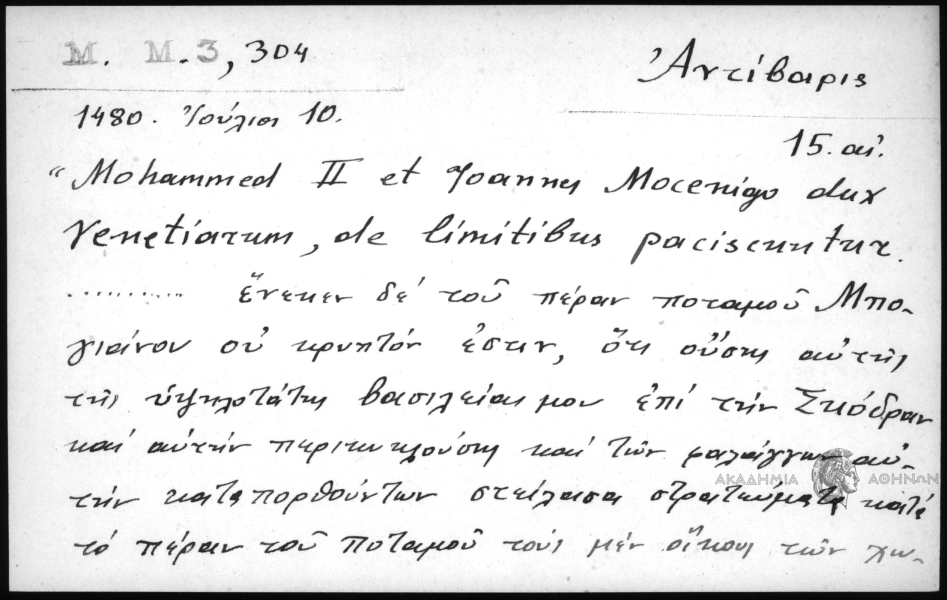 M. M.3, 304
Ἀντίβαρις
1480. Ἰούλιος 10.
15. αἰ.
“Mohammed II et Joannes Mocenigo dux
Venetiarum, de limitibus paciscuntur.
........... ἕνεκεν δέ τοῦ πέραν ποταμοῦ Μπο-
γιάνου οὐ κρυπτόν ἐστιν, ὅτι οὔσης αὐτῆς
τῆς ὑψηλοτάτης βασιλείας μου ἐπί τήν Σκόδραν
καί αὐτήν περικυκλούσης καί τῶν φαλάγγων αὐ-
τήν καταπορθούντων στείλασα στρατεύματα κατά
τό πέραν τοῦ ποταμοῦ τούς μέν οἴκους τῶν χω-
ΑΚΑΔΗΜΙΑ ΑΘΗΝΩΝ